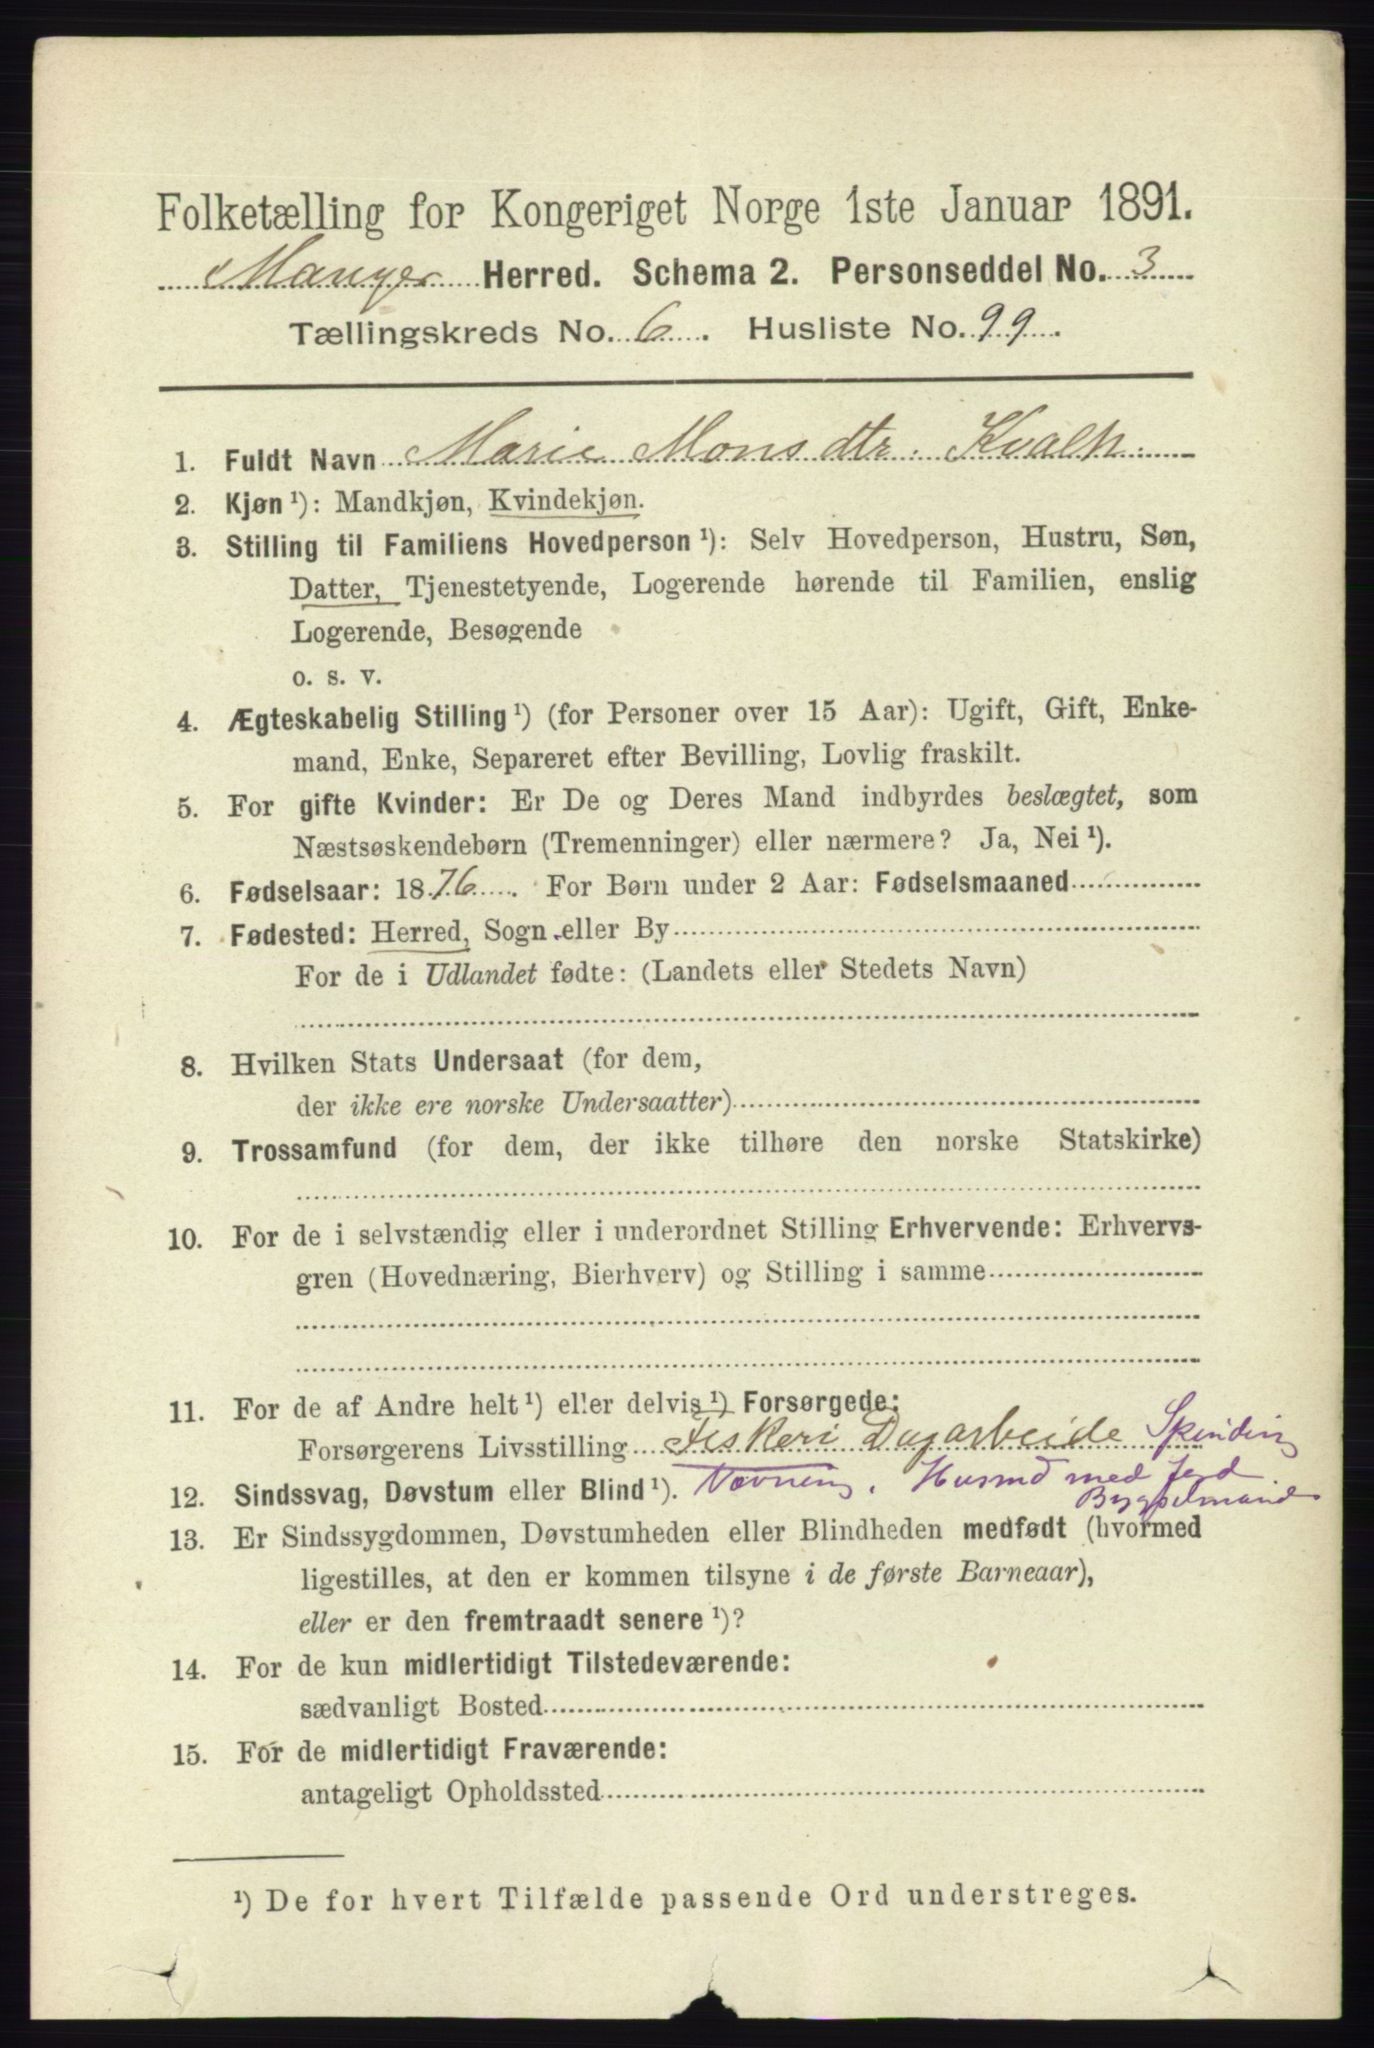 Folketælling for Kongeriget Norge 1ste Januar 1891.
Manger Herred. Schema 2. Personseddel No. 3
Tællingskreds No. 6. Husliste No. 99.
1. Fuldt Navn Marie Monsdtr. Kvalh
2. Kjøn ¹): Mandkjøn, Kvindekjøn.
3. Stilling til Familiens Hovedperson ¹): Selv Hovedperson, Hustru, Søn,
Datter, Tjenestetyende, Logerende hørende til Familien, enslig
Logerende, Besøgende
o. s. v.
4. Ægteskabelig Stilling ¹) (for Personer over 15 Aar): Ugift, Gift, Enke-
mand, Enke, Separeret efter Bevilling, Lovlig fraskilt.
5. For gifte Kvinder: Er De og Deres Mand indbyrdes beslægtet, som
Næstsøskendebørn (Tremenninger) eller nærmere? Ja, Nei ¹).
6. Fødselsaar: 1876. For Børn under 2 Aar: Fødselsmaaned
7. Fødested: Herred, Sogn eller By
For de i Udlandet fødte: (Landets eller Stedets Navn)
8. Hvilken Stats Undersaat (for dem,
der ikke ere norske Undersaatter)
9. Trossamfund (for dem, der ikke tilhøre den norske Statskirke)
10. For de i selvstændig eller i underordnet Stilling Erhvervende: Erhvervs-
gren (Hovednæring, Bierhverv) og Stilling i samme
11. For de af Andre helt ¹) eller delvis ¹) Forsørgede:
Forsørgerens Livsstilling Fiskeri Dagarbeide Spinding
12. Sindssvag, Døvstum eller Blind ¹). Vævning. Husmd med Jord
Bygselmand
13. Er Sindssygdommen, Døvstumheden eller Blindheden medfødt (hvormed
ligestilles, at den er kommen tilsyne i de første Barneaar),
eller er den fremtraadt senere ¹)?
14. For de kun midlertidigt Tilstedeværende:
sædvanligt Bosted
15. For de midlertidigt Fraværende:
antageligt Opholdssted
¹) De for hvert Tilfælde passende Ord understreges.